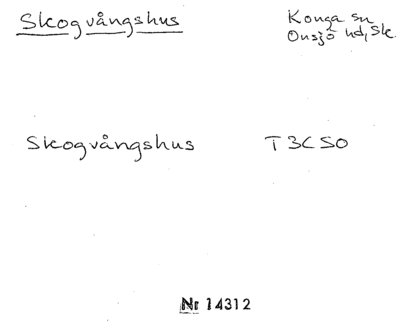 Skogvångshus
Konga sn
Onsjö hd, Sk.
Skogvångshus
T3C50
Nr 14312